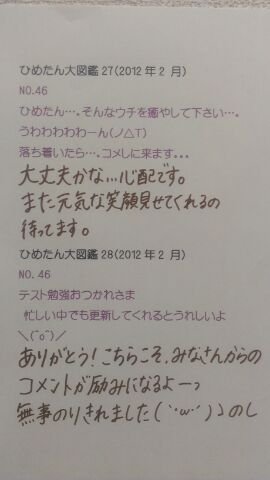 ひめたん大図鑑 27(2012 年 2 月)
NO.46
ひめたん…。そんなウチを癒やして下さい…。
うわわわわわーん(ノ△T)
落ち着いたら…。コメしに来ます。。。
大丈夫かな…心配です。
また元気な笑顔見せてくれるの
待ってます。
ひめたん大図鑑 28(2012 年 2 月)
NO.46
テスト勉強おつかれさま
忙しい中でも更新してくれるとうれしいよ
＼(^o^)／
ありがとう！こちらこそ、みなさんからの
コメントが励みになるよーっ
無事のりきれました(｀･ω･´)ゝのし